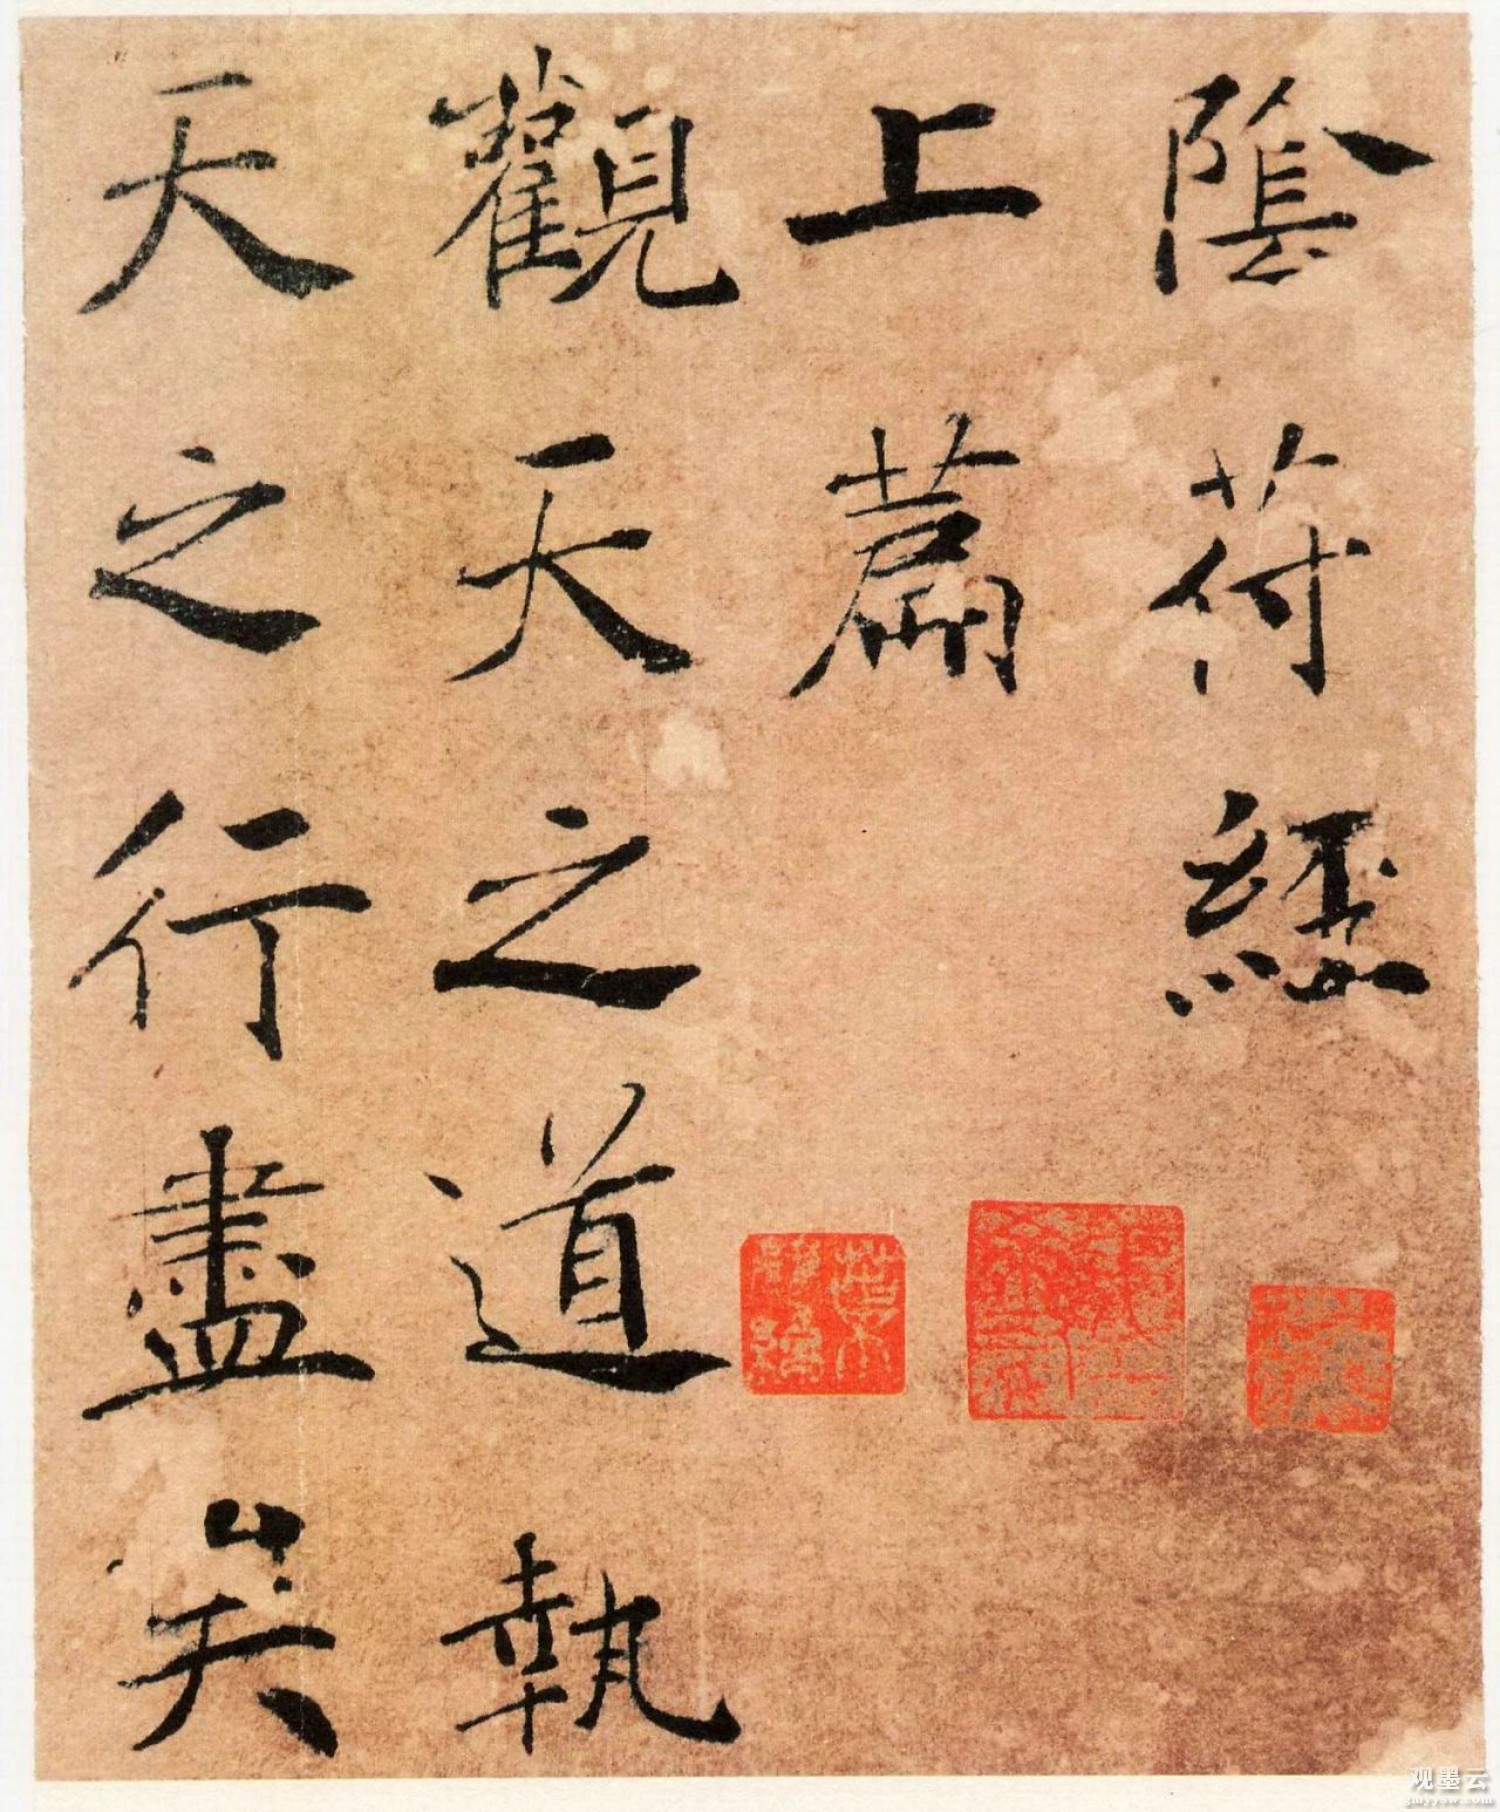 陰符經
上篇
觀天之道執
天之行盡矣
观墨云
gmyysw.com